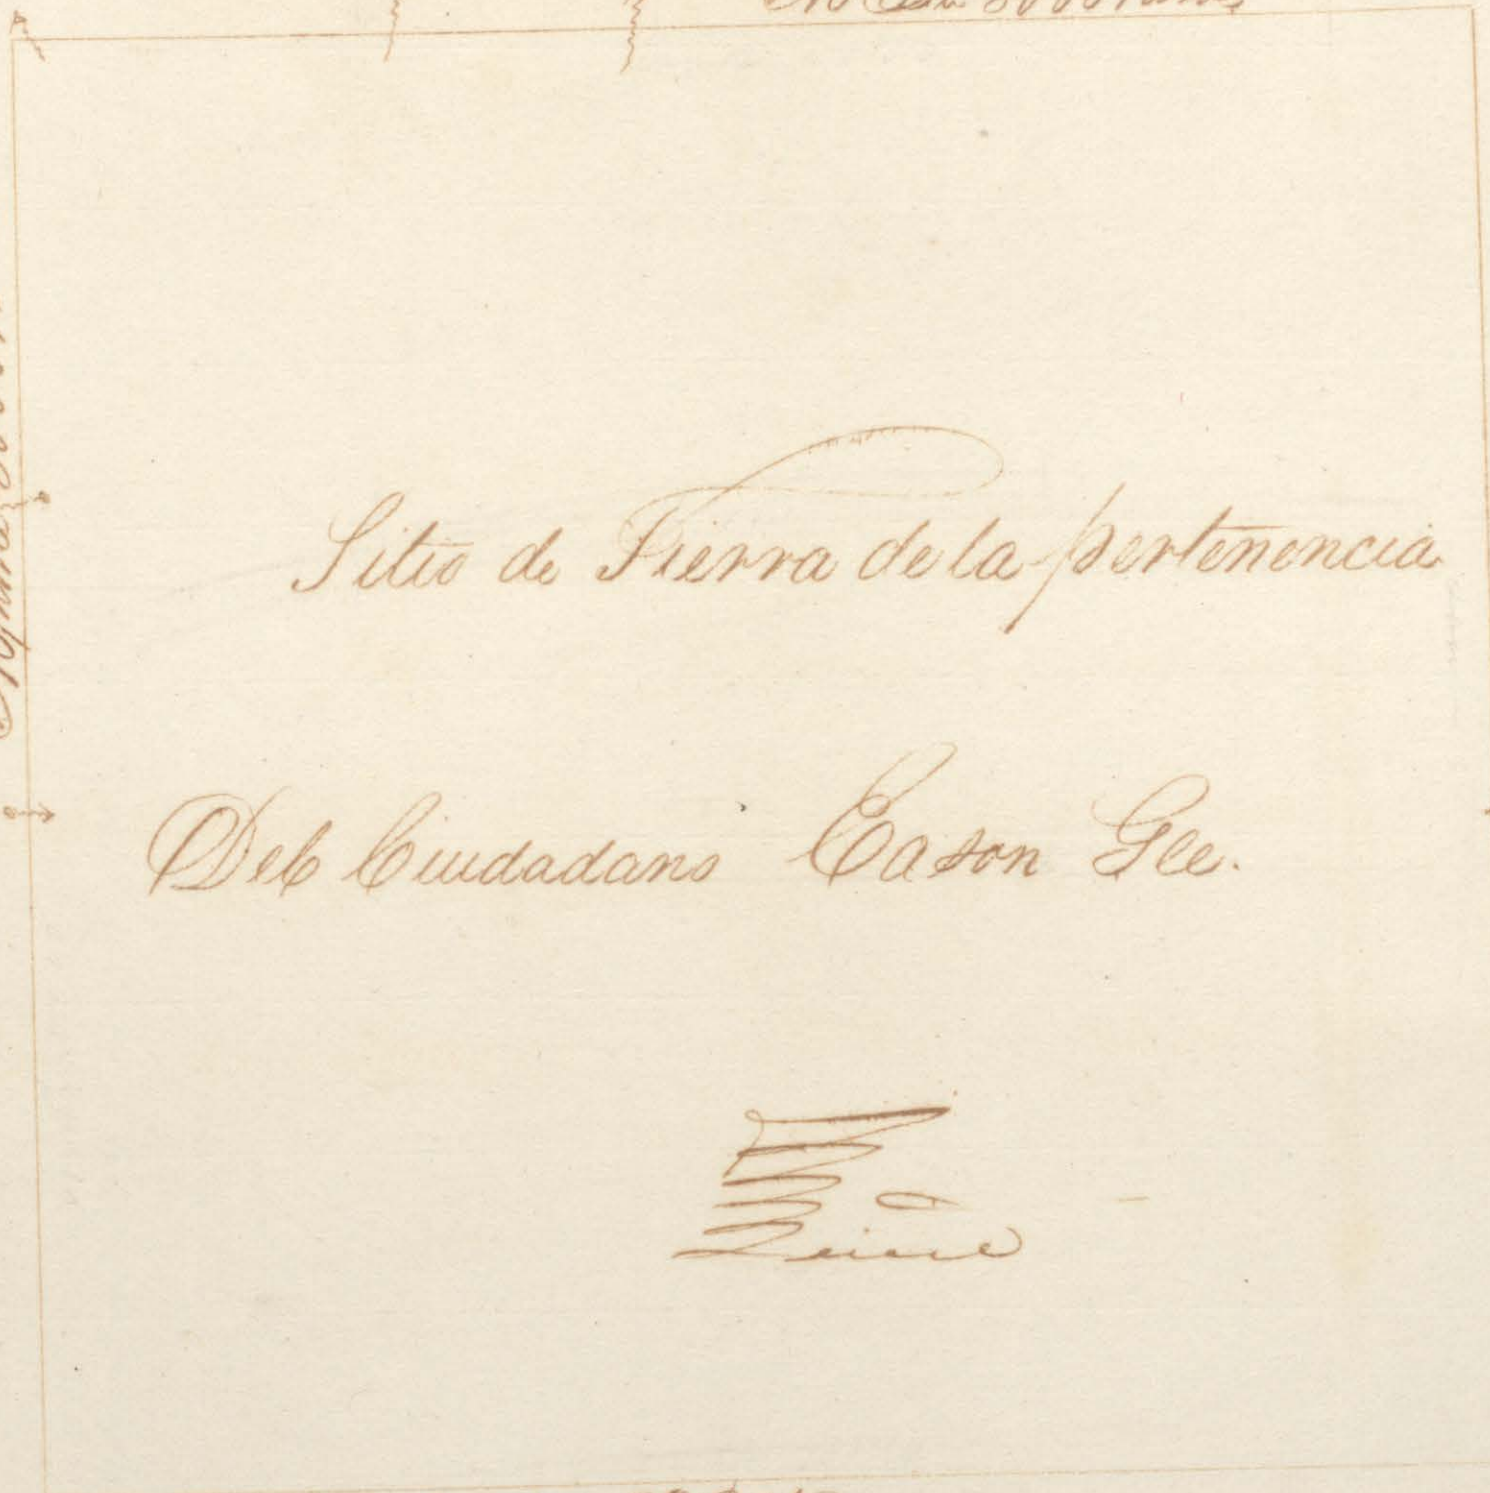 Sitio de Tierra de la pertenencia
Del Ciudadano Eason Gee.